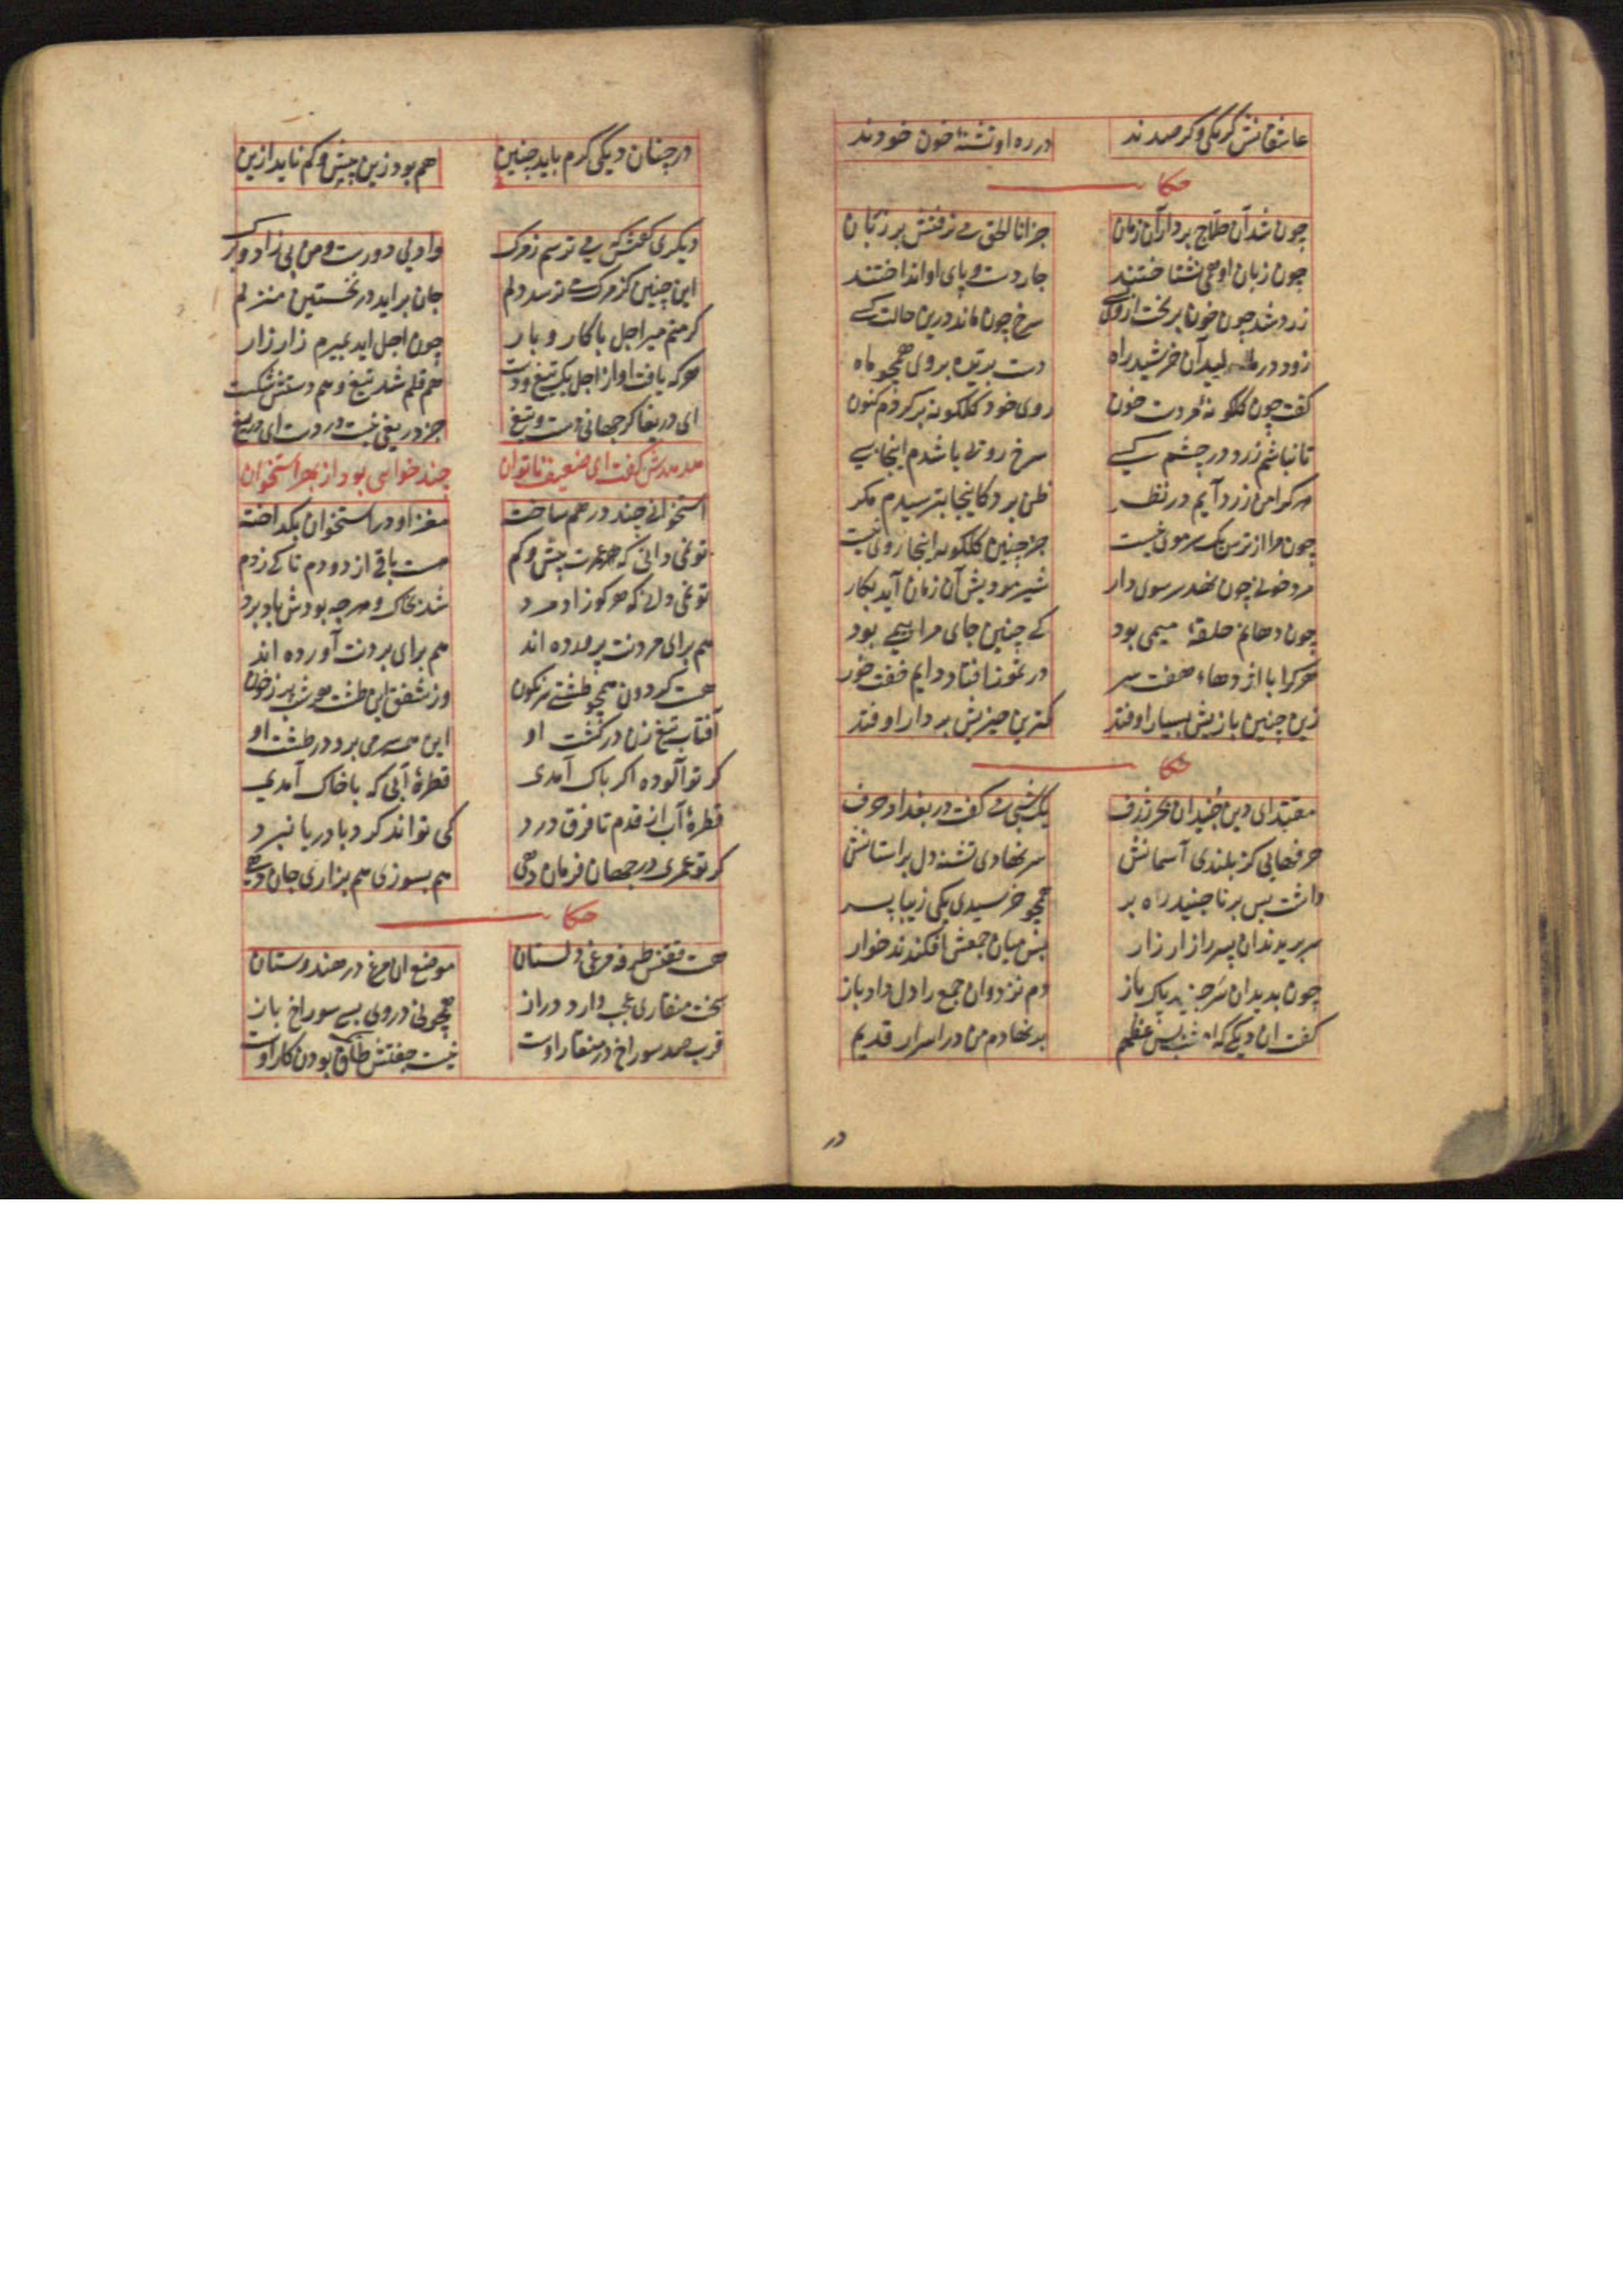 عاشقانش گر یکی و گر صدند در ره او تشنهٔ خون خودند
حکا
چون شد آن حلاج بر دار آن زمان جز انا الحق می نرفتش بر زبان
چون زبان او همی نشناختند چار دست و پای او انداختند
زرد شد چون خون بریخت از وی سرخ چون ماند درین حالت کسی
زود در مالید آن خرشید راه دست بریده بروی همچو ماه
گفت چون گلگونهٔ مردست خون روی خود گلگونه برکردم کنون
تا نباشم زرد در چشم کسی سرخ روئی باشدم اینجا بسی
هر کرا من زرد آیم در نظر ظن برد کاینجا بترسیدم مگر
چون مرا از ترس یک سر موی نیست جز چنین گلگونه اینجا روی نیست
مرد خونی چون نهد سر سوی دار شیر مردیش آن زمان آید بکار
چون دهانم حلقهٔ میمی بود کی چنین جای مرا بیمی بود
هر کرا با اژدهاء هفت سر در تموز افتاد دایم خفت خور
زین چنین بازیش بسیار اوفتد کمترین چیزیش بر دار اوفتد
حکا
مقتدای دین جنید آن بحر ژرف یک شبی می گفت در بغداد حرف
حرفهایی کز بلندی آسمانش سر نهادی تشنه دل بر آستانش
داشت بس برنا جنید راه بر همچو خرسیدی یکی زیبا پسر
سر بریدند آن پسر را زار زار پس میان جمعش افکندند خوار
چون بدید آن سر جنید پاک باز دم نزد وان جمع را دل داد باز
گفت آن دیگی که امشب بس عظیم بر نهادم من در اسرار قدیم
در
در چنان دیگی گرم باید چنین هم بود زین بیش و کم ناید ازین
دیگری گفتش که می ترسم ز مرگ وادیی دورست و من بی زاد و برگ
این چنین کز مرگ می ترسد دلم جان براید در نخستین منزلم
گر منم میر اجل با کار و بار چون اجل اید بمیرم زار زار
هر که یافت او از اجل یک تیغ دست هم قلم شد تیغ و هم دستش شکست
ای دریغا کز جهانی دست و تیغ جز دریغی نیست در دست ای دریغ
هدهدش گفت ای ضعیف ناتوان چند خواهی بود از بهر استخوان
استخوانی چند در هم ساخته مغز او در استخوان بگداخته
تو نمی دانی که عمرت بیش و کم هست باقی از دو دم تا کی ز دم
تو نمی دانی که هر کو زاد مرد شد بخاک و هر چه بودش باد برد
هم برای مردنت پرورده اند هم برای بردنت آورده اند
هست گردون همچو طشتی سرنگون وز شفق این طشت هر شب پر ز خون
آفتاب تیغ زن در گشت او این همه سر می برد در طشت او
گر تو آلوده اگر پاک آمدی قطرهٔ آبی که با خاک آمدی
قطرهٔ آب از قدم تا فرق درد کی تواند کرد با دریا نبرد
گر تو عمری در جهان فرمان دهی هم بسوزی هم بزاری جان دهی
حکا
هست ققنس طرفه مرغی دلستان موضع ان مرغ در هندوستان
سخت منقاری عجب دارد دراز همچو نی در وی بسی سوراخ باز
قرب صد سوراخ در منقار اوست نیست جفتش طاق بودن کار اوست